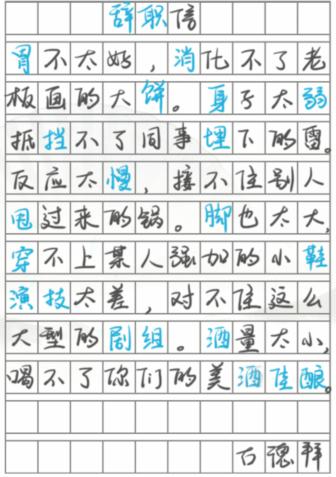 辞职信
胃不太好，消化不了老
板画的大饼。身子太弱
抵挡不了同事埋下的雷。
反应太慢，接不住别人
甩过来的锅。脚也太大，
穿不上某人强加的小鞋
演技太差，对不住这么
大型的剧组。酒量太小，
喝不了你们的美酒佳酿。